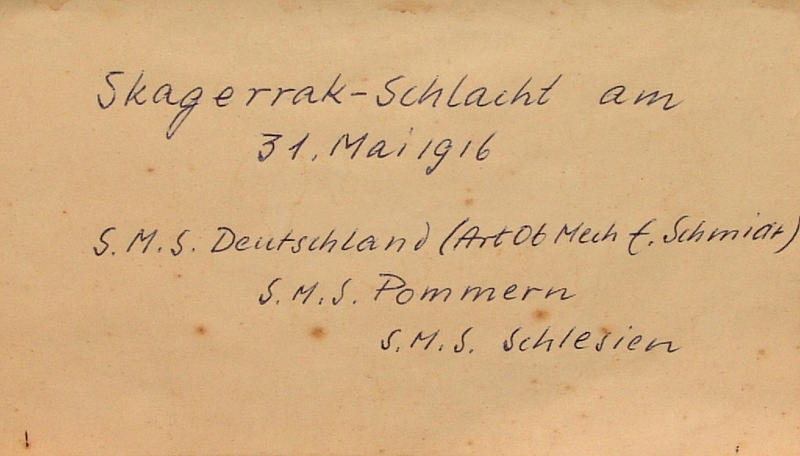 Skagerrak-Schlacht am
31. Mai 1916
S.M.S. Deutschland (Art Ob Mech f. Schmidt)
S.M.S. Pommern
S.M.S. Schlesien